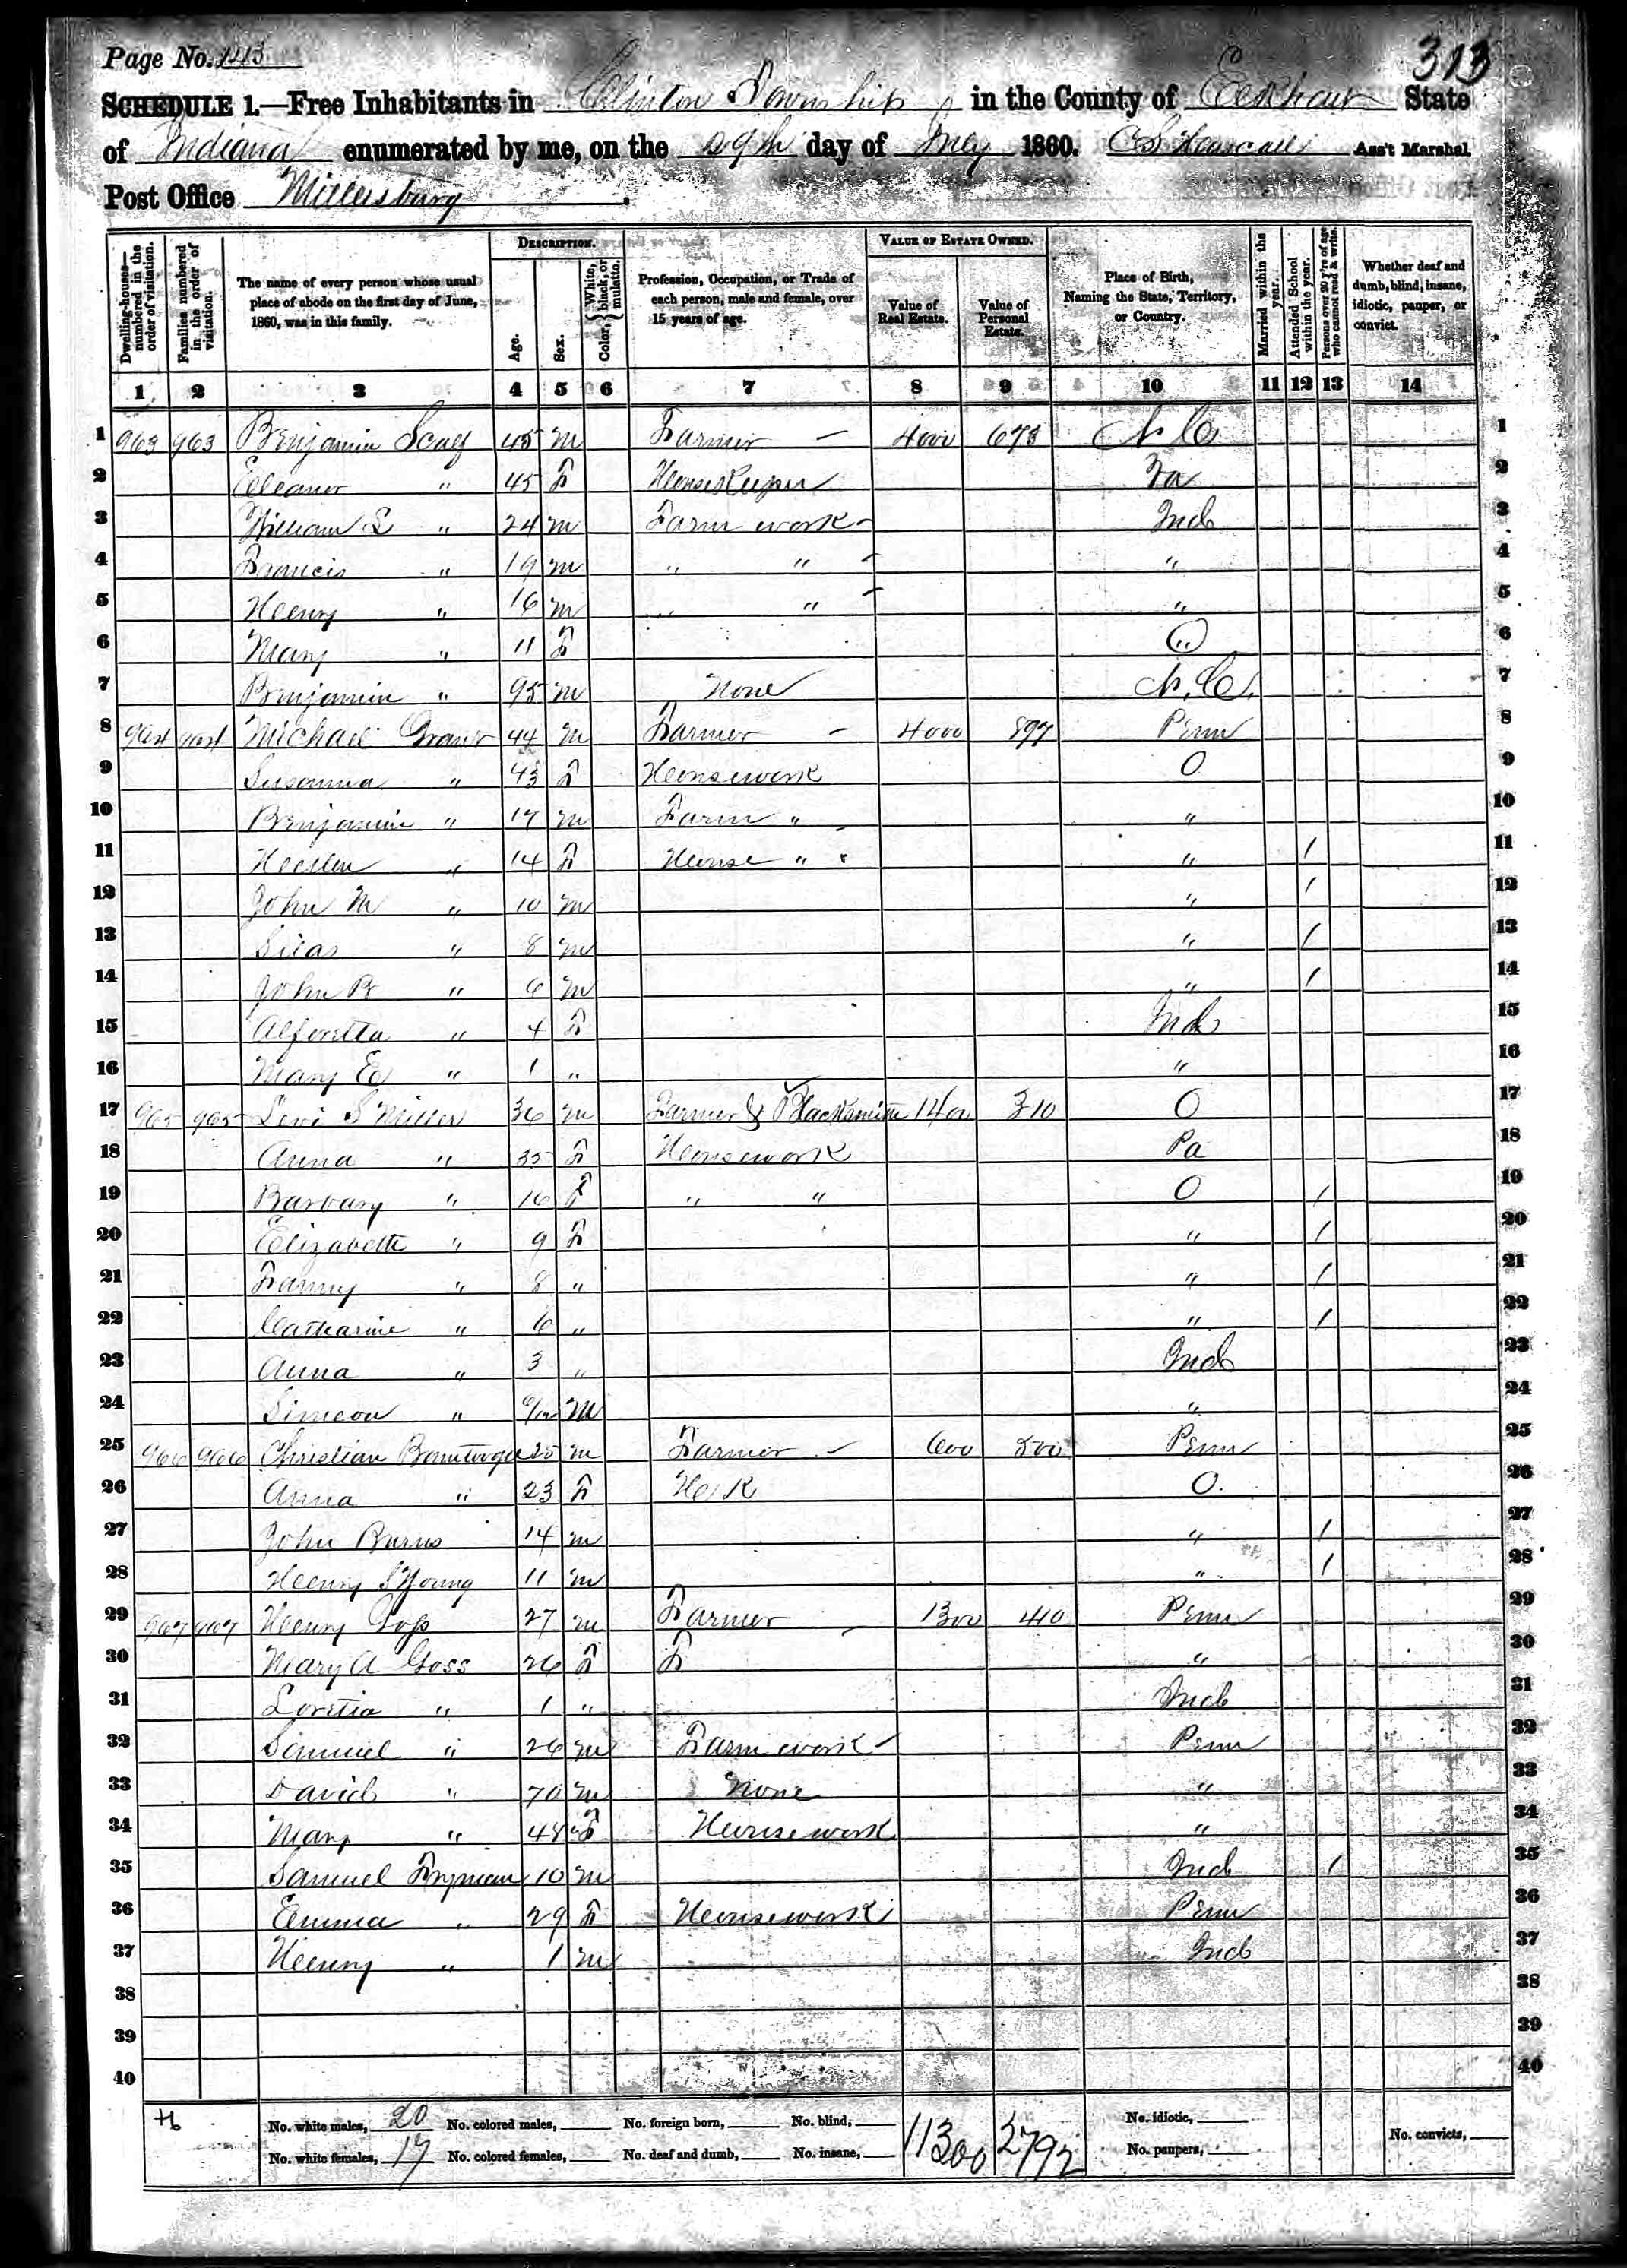 Page No. 143
313
SCHEDULE 1.—Free Inhabitants in Clinton Township in the County of Elkhart State
of Indiana enumerated by me, on the 29th day of July 1860. Ass't Marshal.
Post Office Millersburg.
DESCRIPTION. VALUE OF ESTATE OWNED.
Dwelling-houses—numbered in the order of visitation. Families numbered in the order of visitation. The name of every person whose usual place of abode on the first day of June, 1860, was in this family. Age. Sex. Color, { White, black, or mulatto. Profession, Occupation, or Trade of each person, male and female, over 15 years of age. Value of Real Estate. Value of Personal Estate. Place of Birth, Naming the State, Territory, or Country. Married within the year. Attended School within the year. Persons over 20 y'rs of age who cannot read & write. Whether deaf and dumb, blind, insane, idiotic, pauper, or convict.
1 2 3 4 5 6 7 8 9 10 11 12 13 14
1 963 963 Benjamin 45 m Farmer – 4000 673 N C 1
2 Eleanor " 45 F Housekeeper Va 2
3 William L " 24 m Farm work – Ind 3
4 Francis " 19 m " " – " 4
5 Henry " 16 m " " – " 5
6 Mary " 11 F " 6
7 Benjamin " 95 m None N.C. 7
8 964 964 Michael 44 m Farmer – 4000 897 Penn 8
9 Susanna " 43 F Housework O 9
10 Benjamin " 17 m Farm " " 10
11 " 14 F House " " / 11
12 John M " 10 m " / 12
13 Silas " 8 m " / 13
14 John B " 6 m " / 14
15 Alforetta " 4 F Ind 15
16 Mary E " 1 " " 16
17 965 965 Levi S Miller 36 m Farmer & Blacksmith 1400 310 O 17
18 Anna " 35 F Housework Pa 18
19 Barbary " 16 F " " O / 19
20 Elizabeth " 9 F " / 20
21 Fanny " 8 " " / 21
22 Catharine " 6 " " / 22
23 Anna " 3 " Ind 23
24 Simeon " m " 24
25 966 966 Christian 25 m Farmer – 600 Penn 25
26 Anna " 23 F H K O. 26
27 John Burns 14 m " / 27
28 Henry S Young 11 m " / 28
29 967 967 Henry Goss 27 m Farmer – 1300 410 Penn 29
30 Mary A Goss 26 F F " 30
31 Loretia " 1 " Ind 31
32 Samuel " 26 m Farm work – Penn 32
33 David " 70 m None " 33
34 Mary " 48 F Housework " 34
35 Samuel Fryman 10 m Ind / 35
36 Emma " 29 F Housework Penn 36
37 Henry " 1 m Ind 37
38 38
39 39
40 40
No. white males, 20 No. colored males, No. foreign born, No. blind, 11300 2792 No. idiotic,
No. white females, 17 No. colored females, No. deaf and dumb, No. insane, No. paupers, No. convicts,